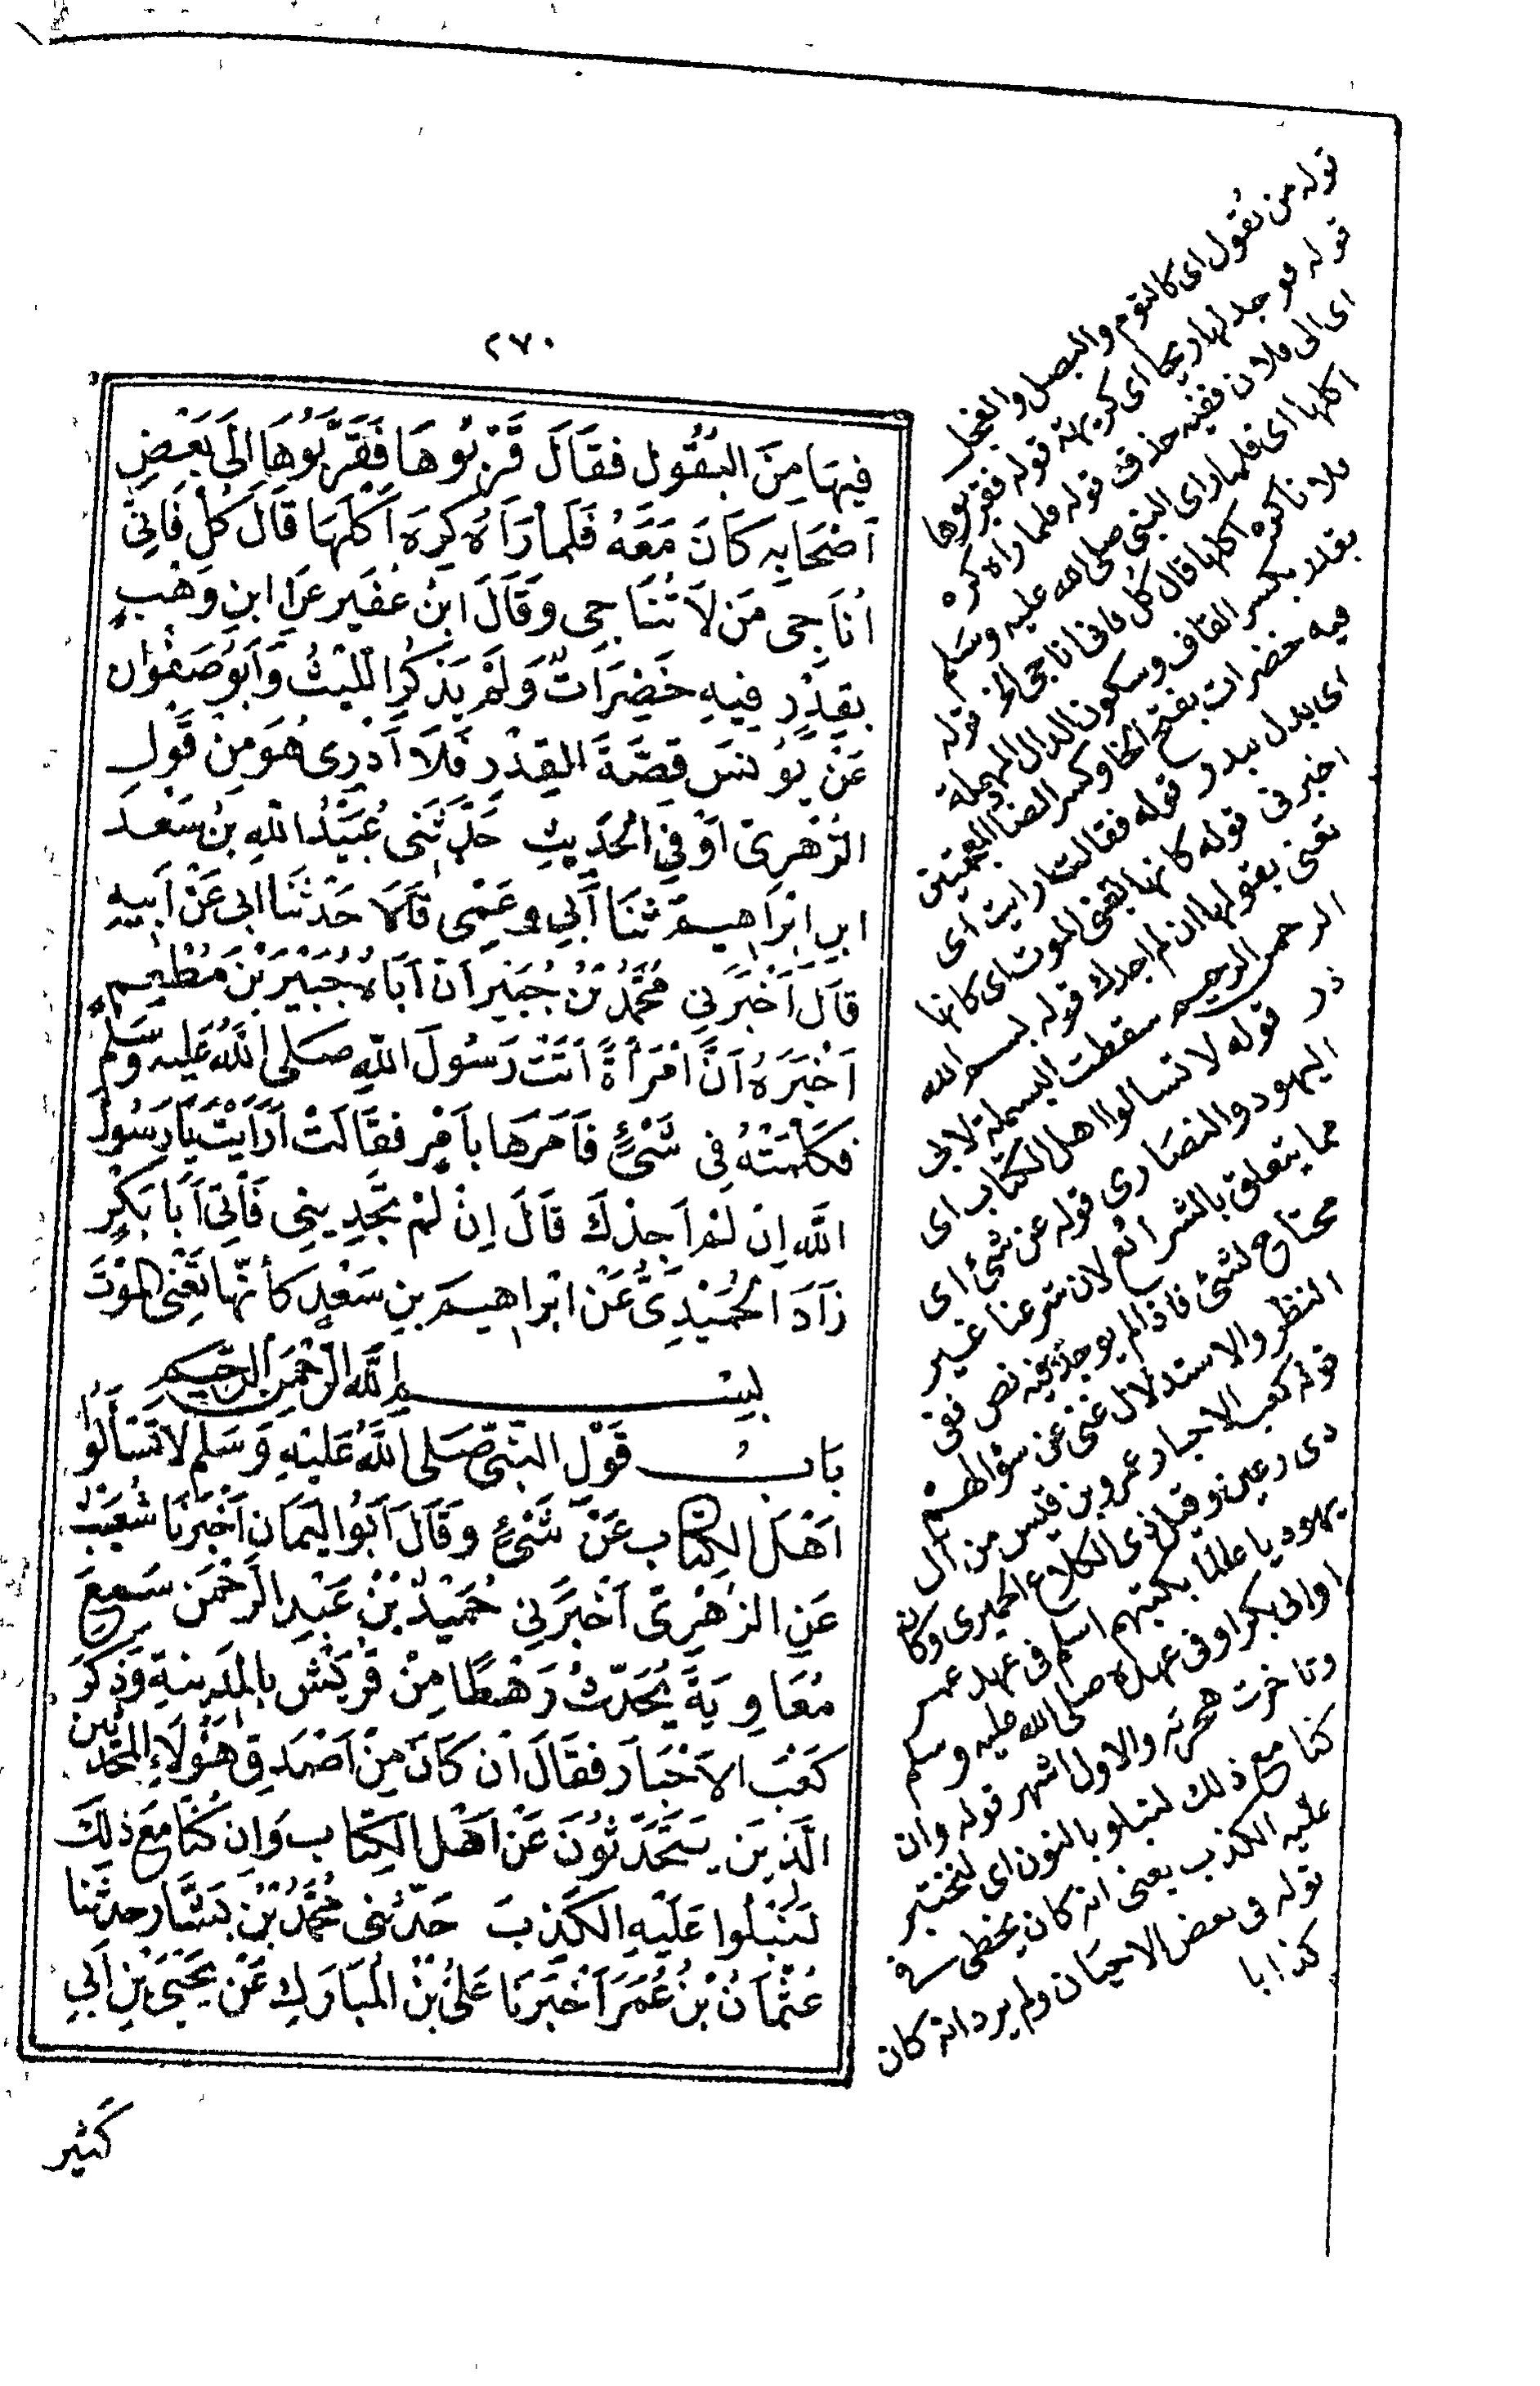 ٢٧٠
فِيهَا مِنَ الْبُقُولِ فَقَالَ قَرِّبُوهَا فَقَرَّبُوهَا اِلَى بَعْضِ
اَصْحَابِهِ كَانَ مَعَهُ فَلَمَّا رَاَهُ كَرِهَ اَكْلَهَا قَالَ كُلْ فَاِنِّي
اُنَاجِى مَنْ لَا تُنَاجِى وَقَالَ ابْنُ عُفَيْرٍ عَنِ ابْنِ وَهْبٍ
بِقِدْرٍ فِيهِ خَضِرَاتٌ وَلَمْ يَذْكُرِ اللَّيْثُ وَاَبُو صَفْوَان
عَنْ يُونُسَ قِصَّةَ الْقِدْرِ فَلَا اَدْرِى هُوَ مِنْ قَوْلِ
الزُّهْرِىِّ اَوْ فِي الْحَدِيثِ حَدَّثَنِى عُبَيْدُ اللهِ بْنُ سَعْد
ابن اِبْرَاهِيمَ ثَنَا أَبِي وعَمِّى قَالَا حَدَّثَنَا ابى عَنْ اَبِيهِ
قَالَ اَخْبَرَنِي مُحَمَّدُ بْنُ جُبَيْرٍ اَنَّ اَبَاهُ جُبَيْرَ بْنَ مُطْعِمٍ
اَخْبَرَهُ اَنَّ امْرَأَةً اَتَتْ رَسُولَ اللهِ صَلَى اللَّهُ عَلَيه وَسَلَّم
فَكَلَّمَتْهُ فِى شَىْءٍ فَاَمَرَهَا بِاَمْرٍ فَقَالَتْ اَرَاَيْتَ يَا رَسُولَ
اللَّه اِنْ لَمْ اَجِدْكَ قَالَ اِنْ لَمْ تَجِدِينِى فَأْتِى اَبَا بَكْرٍ
زَادَ الْحُمَيْدِىُّ عَنْ اِبْرَاهِيمَ بنِ سَعْدٍ كَأَنَّهَا تَعْنِى الْمَوْتَ
بِسْمِ اللَّهِ الرَّحْمَنِ الرَّحِيمِ
بَابُ قَوْلِ النَّبِىِّ صَلَى اللَّهُ عَلَيْهِ وَسَلم لَا تَسْأَلُوا
اَهْلَ الْكِتَابِ عَنْ شَىْءٍ وَقَالَ اَبُو الْيَمَانِ اَخْبَرَنَا شُعَيْبٌ
عَنِ الزُّهْرِىِّ اَخْبَرَنِي حُمَيْدُ بْنُ عَبْدِ الرَّحْمَنِ سَمِعَ
مُعَاوِيَةَ يُحَدِّثُ رَهْطًا مِنْ قُرَيْشٍ بِالْمَدِينَةِ وَذَكَرَ
كَعْبَ الْاَحْبَارِ فَقَالَ اِنْ كَانَ مِنْ اَصْدَقِ هَؤُلَاءِ الْمُحَدِّثِينَ
الَّذِينَ يَتَحَدَّثُونَ عَنْ اَهْلِ الْكِتَابِ وَاِنْ كُنَّا مَعَ ذَلِكَ
لَنَبْلُوا عَلَيْهِ الْكَذِبَ حَدَّثَنِى مُحَمَّدُ بْنُ بَشَّار حَدَثَنَا
عُثْمَانُ بْنُ عُمَرَ اَخْبَرَنَا عَلىُّ بْنُ الْمُبَارَكِ عَنْ يَحْيَى بْنِ أَبِي
كَثير
قوله من بُقول اى كالثوم والبصل والفجل
قوله فوجد لها ريحا اى كريهة قوله فقربوها
اى الى فلان ففيه حذف قوله فلما رآه كره
اكلها اى فلما راى النبى صلى الله عليه وسلم
فلانا كره اكلها قال كل فانى اناجى الخ قوله
بقدر بكسر القاف وسكون الدال المهملة
فيه خضرات بفتح الخا وكسر الضاد المعجمتين
اى بدل ببدر قوله فقالت ارايت اى
اخبرنى قوله كانها تعنى الموت اى كانها
تعنى بقولها ان لم اجدك قوله بسم الله
الرحمن الرحيم سقطت البسملة لابى
ذر قوله لا تسالوا اهل الكتاب اى
اليهود والنصارى قوله عن شئ اى
مما يتعلق بالشرائع لان شرعنا غير
محتاج لشئ فاذا لم يوجد فيه نص ففى
النظر والاستدلال غنى عن سؤالهم
قوله كعب الاحبار عمرو بن قيس من آل
ذى رعين وقيل ذى الكلاع الحميرى وكان
يهوديا عالما بكتبهم اسلم فى عهد عمر
او ابى بكر او فى عهده صلى الله عليه وسلم
وتاخرت هجرته والاول اشهر قوله وان
كنا مع ذلك لنبلو بالنون اى لنختبر
عليه الكذب يعنى انه كان يخطى فى
قوله فى بعض الاحيان ولم يرد انه كان
كذابا